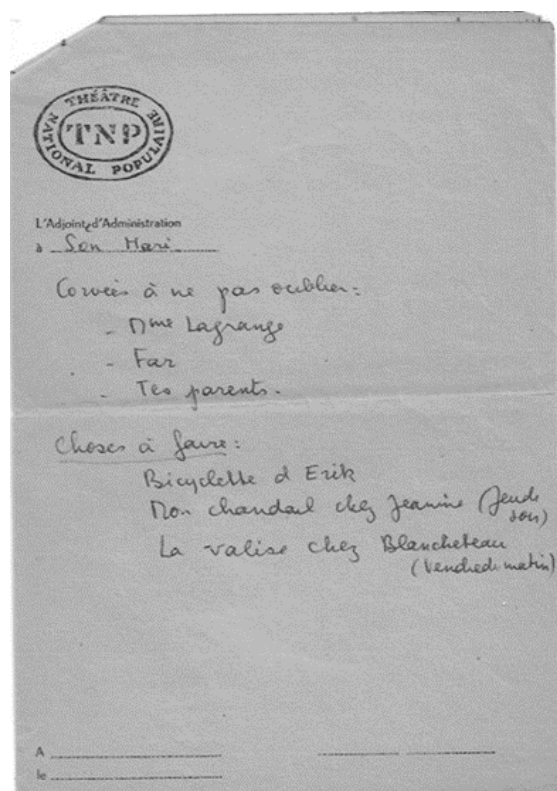 THÉÂTRE
NATIONAL POPULAIRE
TNP
L'Adjoint d'Administration
à Son Mari
Corvées à ne pas oublier :
- Mme Lagrange
- Far
- Tes parents.
Choses à faire :
Bicyclette d Erik
Mon chandail chez Jeanine (Jeudi
soir)
La valise chez Blancheteau
(Vendredi matin)
A
le